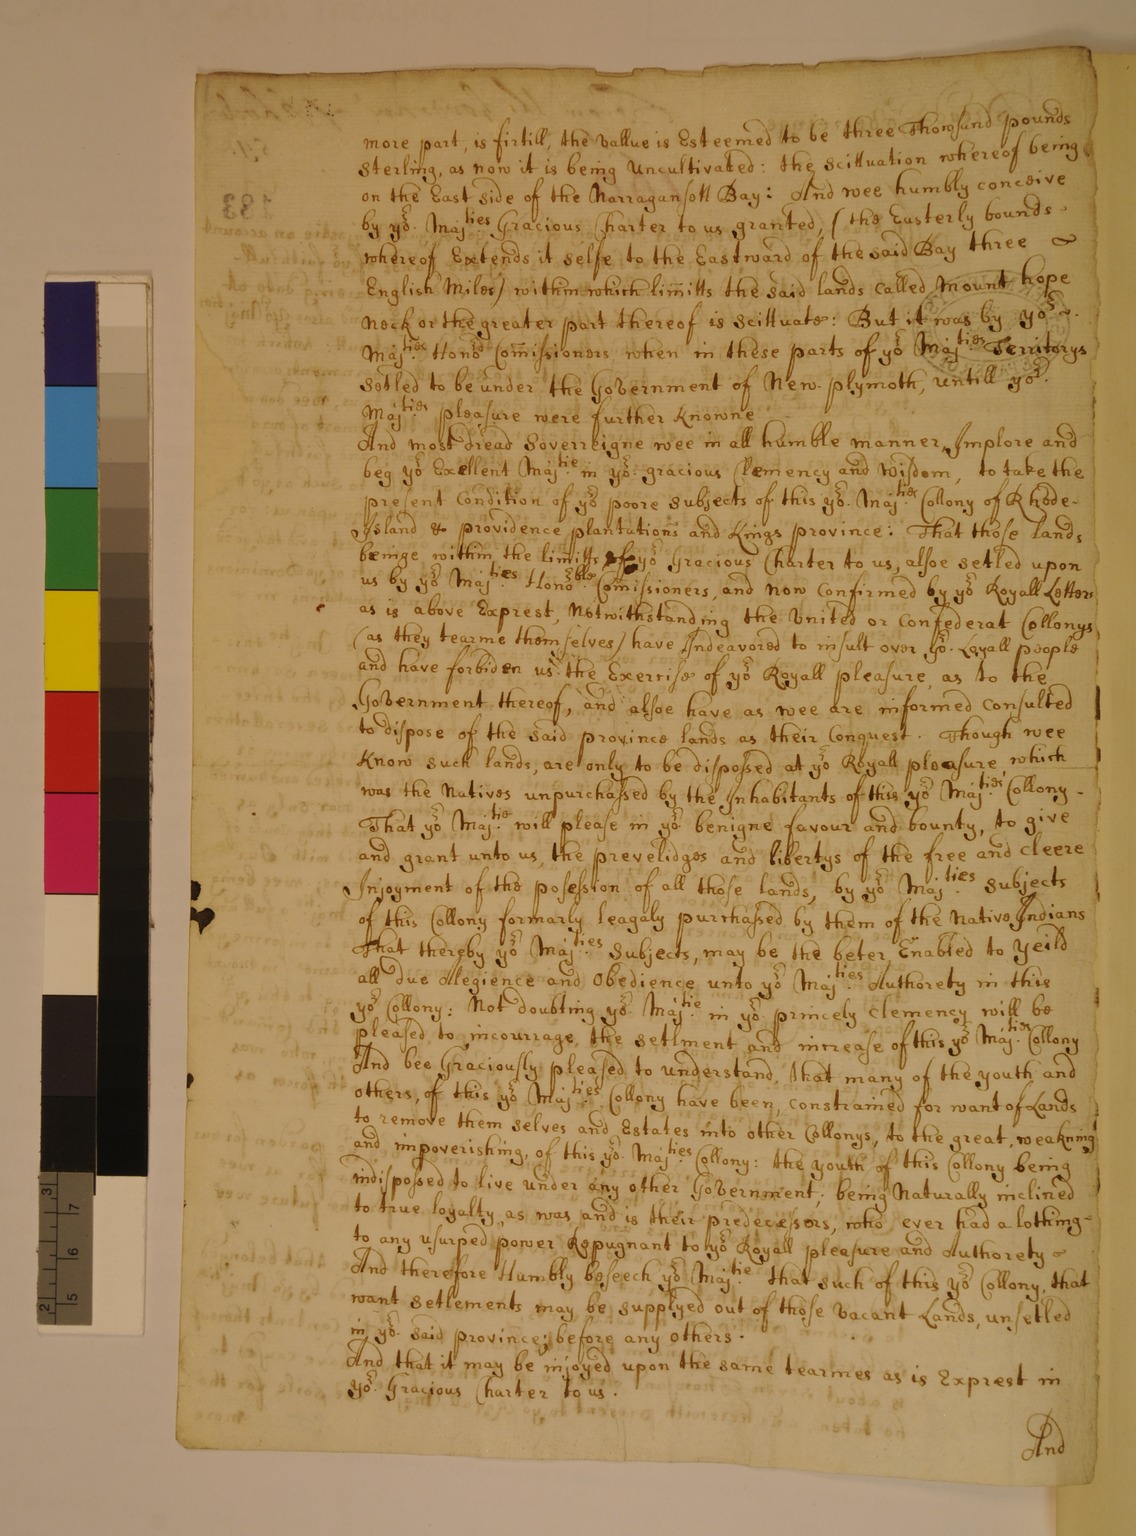 more part, is firtill, the vallue is Esteemed to be three Thowsand pounds
Sterling, as now it is being Uncultivated: the scittuation whereof being
on the East side of the Narragansett Bay: And wee humbly conceive
by yor. Majties Gracious Charter to us granted, (the Easterly bounds
whereof Extends it selfe to the Eastward of the said Bay three
English Miles) within which limitts the said lands called Mount hope
Neck or the greater part thereof is scittuate: But it was by yor.
Majties Honod Comissioners when in these parts of yor Majties Territorys
setled to be under the Government of New-plymoth, untill yor.
Majties pleasure were further Knowne
And most dread Soverreigne wee in all humble manner, Implore and
beg yor Exellent Majtie in yor. gracious Clemency and wisdom, to take the
present Condition of yor poore subjects of this yor. Majties Collony of Rhode-
Island & providence plantations and Kings province: That those lands
beinge within the limitts of yor Gracious Charter to us, alsoe setled upon
us by yor Majties Honoble Comissioners, and now Confirmed by yor Royall Letters
as is above Exprest, Notwithstanding the United or Confederat Collonys
(as they tearme themselves) have Indeavored to insult over yor. Loyall people
and have forbiden us the Exercise of yor Royall pleasure, as to the
Government thereof, and alsoe have as wee are informed Consulted
to dispose of the said province lands as their Conquest. Though wee
Know such lands, are only to be disposed at yor Royall pleasure, which
was the Natives unpurchassed by the Inhabitants of this yor Majties Collony-
That yor Majtie will please in yor benigne favour and bounty, to give
and grant unto us, the prevelidges and libertys of the free and cleere
Injoyment of the posession of all those lands, by yor Majties subjects
of this Collony formarly leagaly purchassed by them of the Native Indians
That thereby yor Majties Subjects, may be the beter Enabled to yeild
all due Alegience and Obedience unto yor Majties Authorety in this
yor Collony: Not doubting yor. Majtie in yor princely Clemency will be
pleased to incourrage the setlment and increase of this yor Majties Collony
And bee Graciously pleased to understand, that many of the youth and
others, of this yor Majties Collony have been, constrained for want of Lands
to remove them selves and Estates into other Collonys, to the great, weakning
and impoverishing, of this yor. Majties Collony: the youth of this Collony being
indisposed to live under any other Government; being Naturally inclined
to true loyalty, as was and is their predecessors, who ever had a lothing-
to any usurped power Repugnant to yor Royall pleasure and Authorety
And therefore Humbly beseech yor Majtie that such of this yor Collony, that
want setlements may be supplyed out of those vacant Lands, unsetled
in yor. said province; before any others.
And that it may be injoyed upon the same tearmes as is Exprest in
yor. Gracious Charter to us.
And